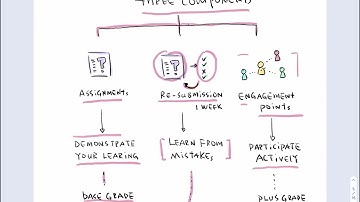 THREE COMPONENTS
ASSIGNMENTS
RE-SUBMISSION
1 WEEK
ENGAGEMENT
POINTS
DEMONSTRATE
YOUR LEARING
[LEARN FROM
MISTAKES]
PARTICIPATE
ACTIVELY
BASE GRADE
PLUS GRADE